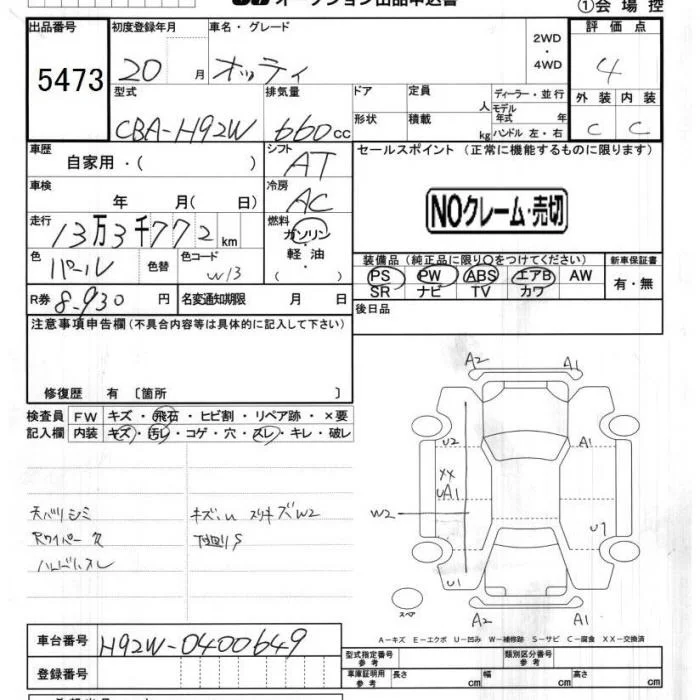 オークション出品申込書
①会場控
出品番号 初度登録年月 車名・グレード 2WD・4WD 評価点
5473 20 月 オッティ 4
型式 排気量 ドア 定員 人 ディーラー・並行 外装 内装
CBA-H92W 660cc 形状 積載 kg モデル年式 年 ハンドル 左・右 C C
車歴 シフト セールスポイント (正常に機能するものに限ります)
自家用・( ) AT
車検 冷房
年 月( 日) AC
NOクレーム・売切
走行 燃料
13万3千772km ガソリン・軽油・( )
色 色替 色コード
パール W13
装備品(純正品に限り○をつけてください) 新車保証書
PS PW ABS エアB AW 有・無
SR ナビ TV カワ
R券 8-930円 名変通知期限 月 日
後日品
注意事項申告欄(不具合内容等は具体的に記入して下さい)
修復歴 有 〔箇所 〕
検査員 FW キズ・飛石・ヒビ割・リペア跡・×要
記入欄 内装 キズ・汚レ・コゲ・穴・スレ・キレ・破レ
天バリシミ
Rワイパー欠
ハンドルスレ
キズいU スリキズW2
下廻りS
A2 A1
U2 A1
XX
UA1
W2
U1
U1
スペア
A2 A1
A-キズ E-エクボ U-凹み W-補修跡 S-サビ C-腐食 XX-交換済
車台番号 H92W-0400649
型式指定番号 参考 類別区分番号 参考
登録番号
車庫証明用 参考 長さ cm 幅 cm 高さ cm